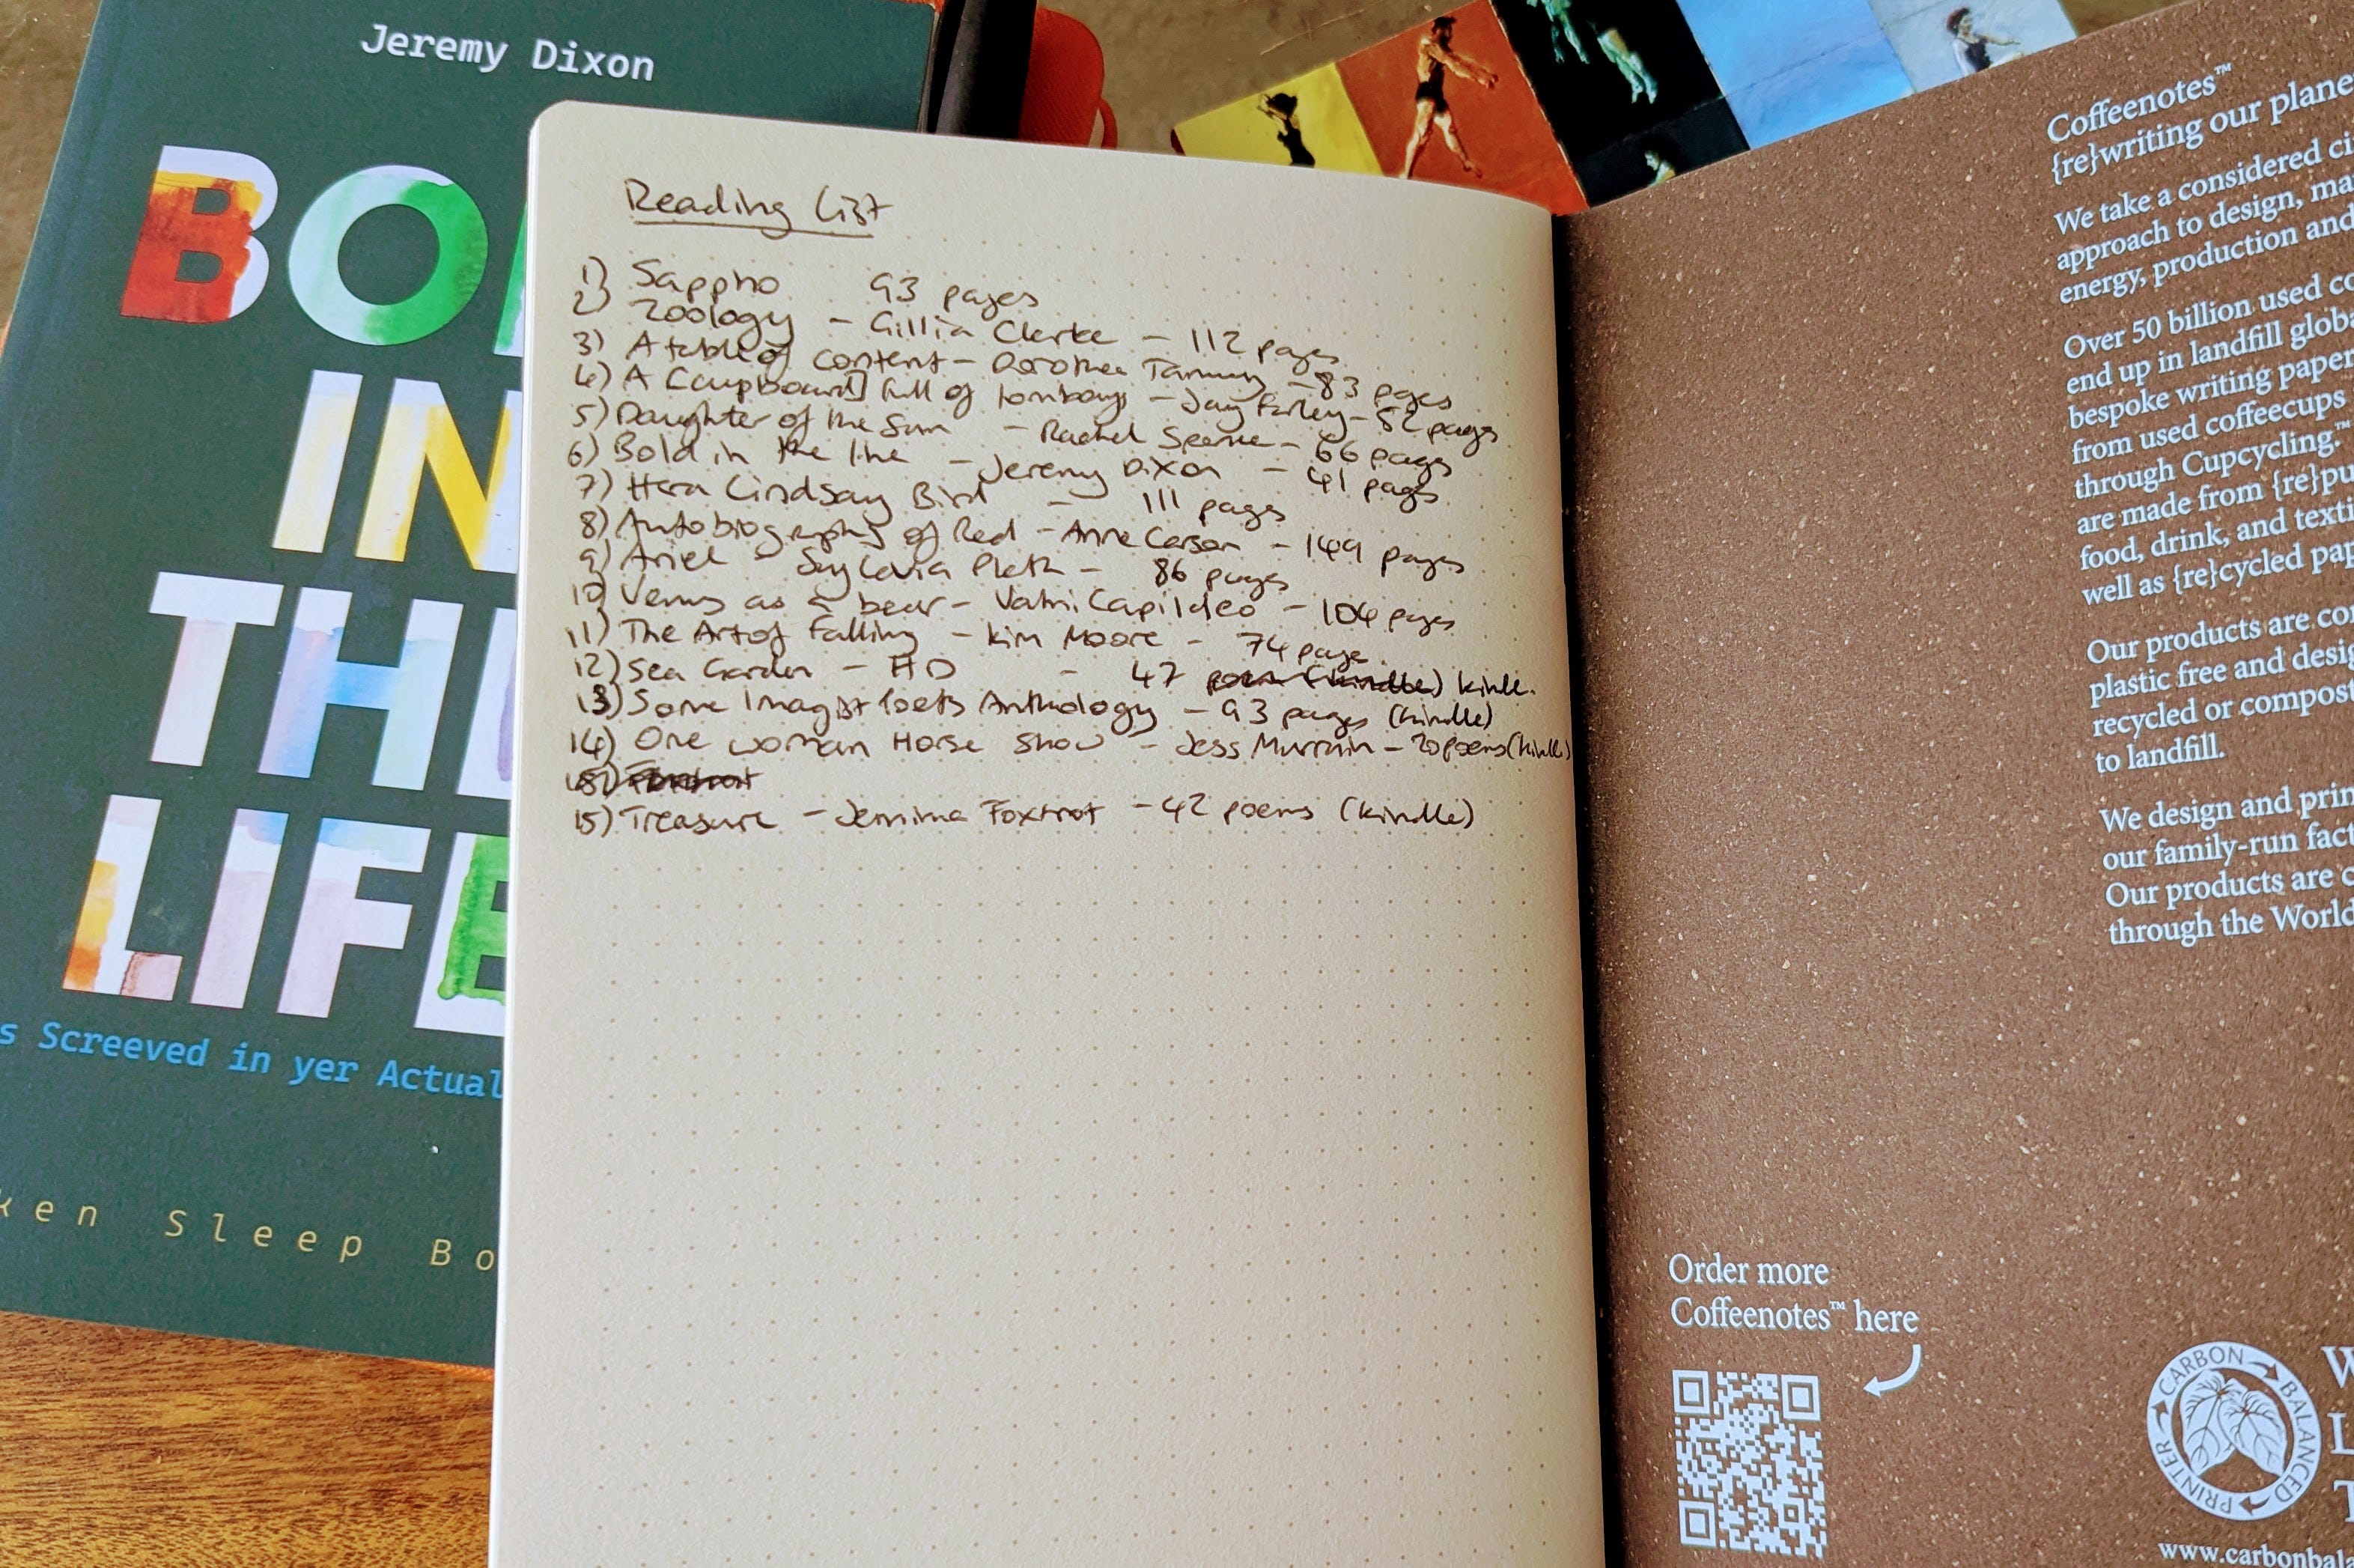 Jeremy Dixon
BO
IN
THE
LIFE
s Screeved in yer Actual
ken Sleep Bo
Reading List
1) Sappho 93 pages
2) Zoology - Gillia Clerke - 112 pages
3) A table of content - Dorothea Tanning - 83 pages
4) A Cupboard full of tomboys - Jay Farley - 52 pages
5) Daughter of the Sun - Rachel - 66 pages
6) Bold in the line - Jeremy Dixon - 41 pages
7) Hera Lindsay Bird - 111 pages
8) Autobiography of Red - Anne Carson - 149 pages
9) Ariel - Plath - 86 pages
10) Venus as a bear - Vahni Capildeo - 104 pages
11) The Art of Falling - Kim Moore - 74 page
12) Sea Garden - HD - 47 poems (kindle) kinle.
13) Some Imagist Poets Anthology - 93 pages (kindle)
14) One woman Horse Show - Jess Murrain - 20 poems (kindle)
15) Treasure - Jemima Foxtrot - 42 poems (kindle)
Coffeenotes™
{re}writing our plane
We take a considered ci
approach to design, ma
energy, production and
Over 50 billion used co
end up in landfill globa
bespoke writing paper
from used coffeecups
through Cupcycling.™
are made from {re}pu
food, drink, and texti
well as {re}cycled pap
Our products are co
plastic free and desig
recycled or compost
to landfill.
We design and prin
our family-run fact
Our products are c
through the World
Order more
Coffeenotes™ here
CARBON BALANCED PRINTER
W
L
T
www.carbonbala